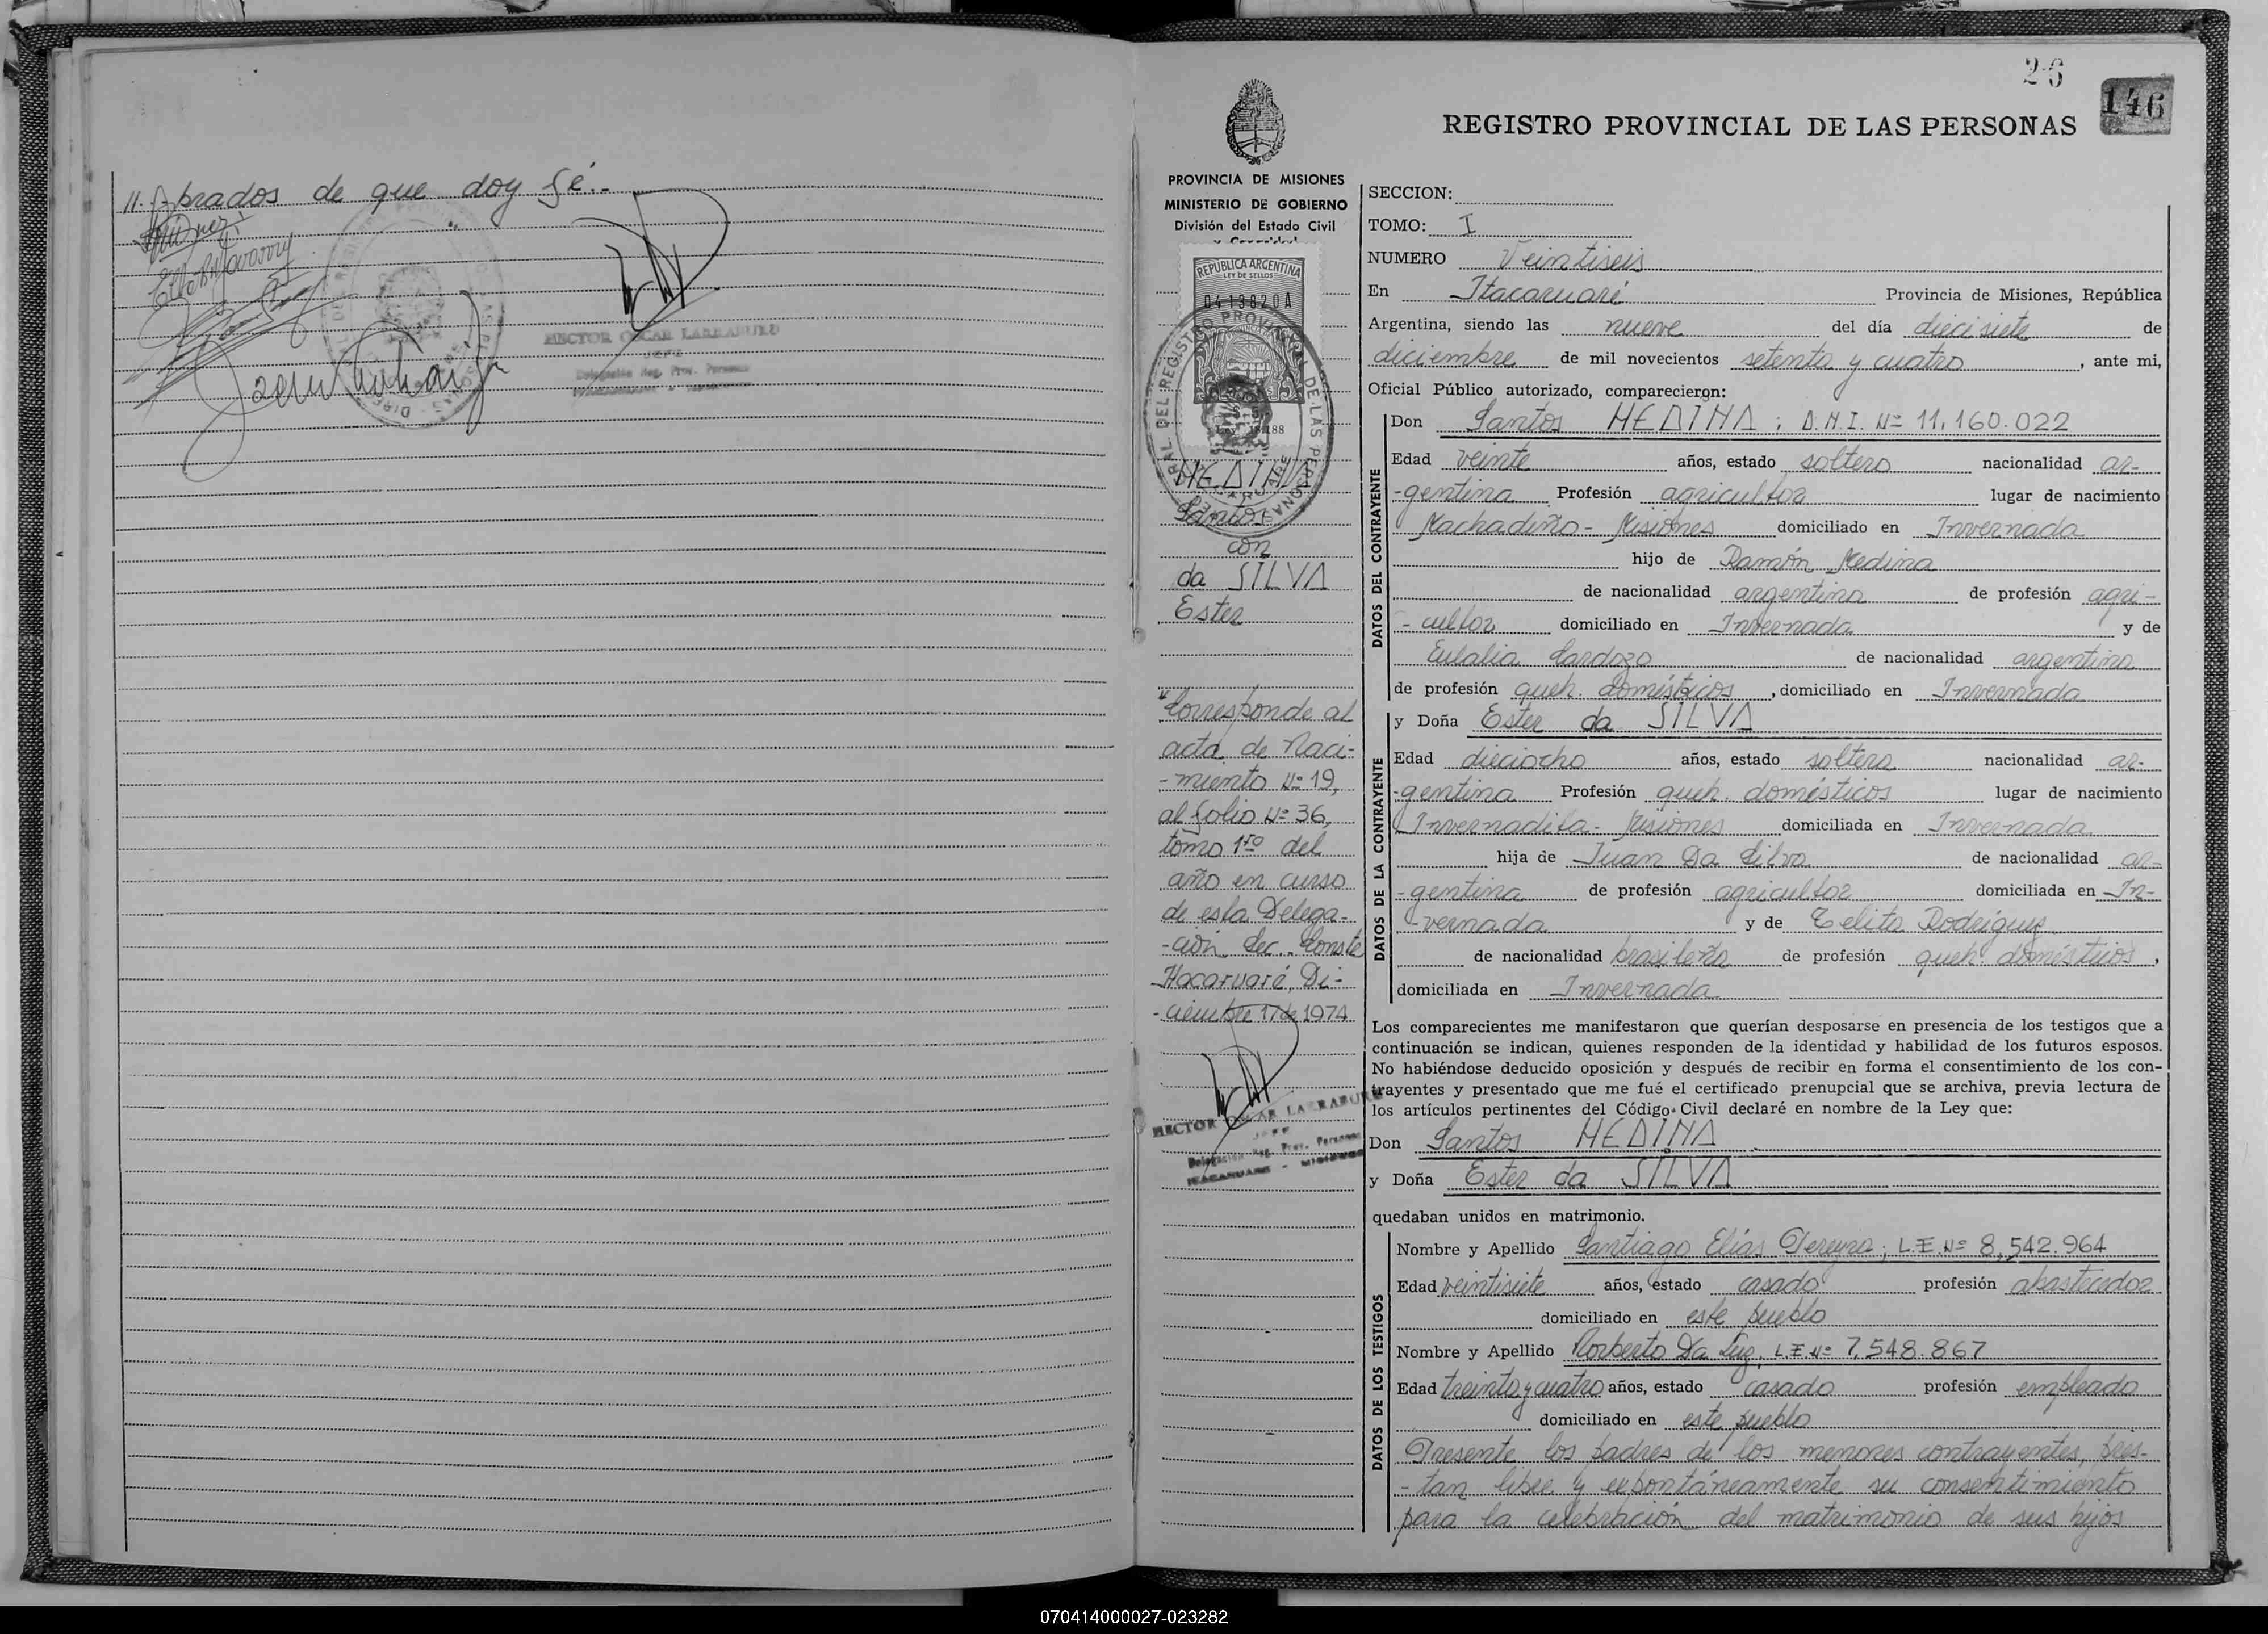 11. brados de que doy fé.-
HECTOR OSCAR LARRABURU
JEFE
Delegación Reg. Prov. Personas
26
146
REGISTRO PROVINCIAL DE LAS PERSONAS
PROVINCIA DE MISIONES
MINISTERIO DE GOBIERNO
División del Estado Civil
REPUBLICA ARGENTINA
LEY DE SELLOS
0413820A
HEDINA
Santos
con
da SILVA
Ester
Corresponde al
acta de Naci-
-miento Nº 19,
al folio Nº 36,
tomo 1ro del
año en curso
de esta Delega-
-ción Sec.. Conste
Itacaruaré, Di-
-ciembre 17 de 1974
HECTOR OSCAR LARRABURU
JEFE
Delegación Reg. Prov. Personas
ITACARUARE - MISIONES
SECCION:
TOMO: I
NUMERO Veintiseis
En Itacaruaré Provincia de Misiones, República
Argentina, siendo las nueve del día diecisiete de
diciembre de mil novecientos setenta y cuatro, ante mi,
Oficial Público autorizado, comparecieron:
DATOS DEL CONTRAYENTE
Don Santos MEDINA; D.N.I. Nº 11.160.022
Edad veinte años, estado soltero nacionalidad ar-
-gentina Profesión agricultor lugar de nacimiento
Machadiño- Misiones domiciliado en Invernada
hijo de Ramón Medina
de nacionalidad argentina de profesión agri-
-cultor domiciliado en Invernada y de
Eulalia Cardozo de nacionalidad argentina
de profesión queh. domésticos, domiciliado en Invernada
DATOS DE LA CONTRAYENTE
y Doña Ester da SILVA
Edad dieciocho años, estado soltera nacionalidad ar-
-gentina Profesión queh. domésticos lugar de nacimiento
Invernadita- Misiones domiciliada en Invernada
hija de Juan Da Silva de nacionalidad ar-
-gentina de profesión agricultor domiciliada en In-
-vernada y de Telita Rodríguez
de nacionalidad brasileña de profesión queh. domésticos,
domiciliada en Invernada
Los comparecientes me manifestaron que querían desposarse en presencia de los testigos que a
continuación se indican, quienes responden de la identidad y habilidad de los futuros esposos.
No habiéndose deducido oposición y después de recibir en forma el consentimiento de los con-
trayentes y presentado que me fué el certificado prenupcial que se archiva, previa lectura de
los artículos pertinentes del Código Civil declaré en nombre de la Ley que:
Don Santos MEDINA
y Doña Ester da SILVA
quedaban unidos en matrimonio.
DATOS DE LOS TESTIGOS
Nombre y Apellido Santiago Elías Pereyra; L.E. Nº 8,542.964
Edad veintisiete años, estado casado profesión abastecedor
domiciliado en este pueblo
Nombre y Apellido Norberto Da Luz, L.E. Nº 7,548.867
Edad treinta y cuatro años, estado casado profesión empleado
domiciliado en este pueblo
Presente los padres de los menores contrayentes, pres-
-tan libre y expontáneamente su consentimiento
para la celebración del matrimonio de sus hijos
070414000027-023282